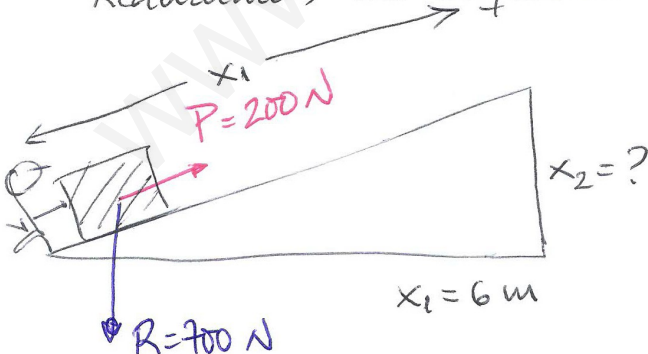 x₁
P=200 N
x₂=?
x₁ = 6 m
R=700 N